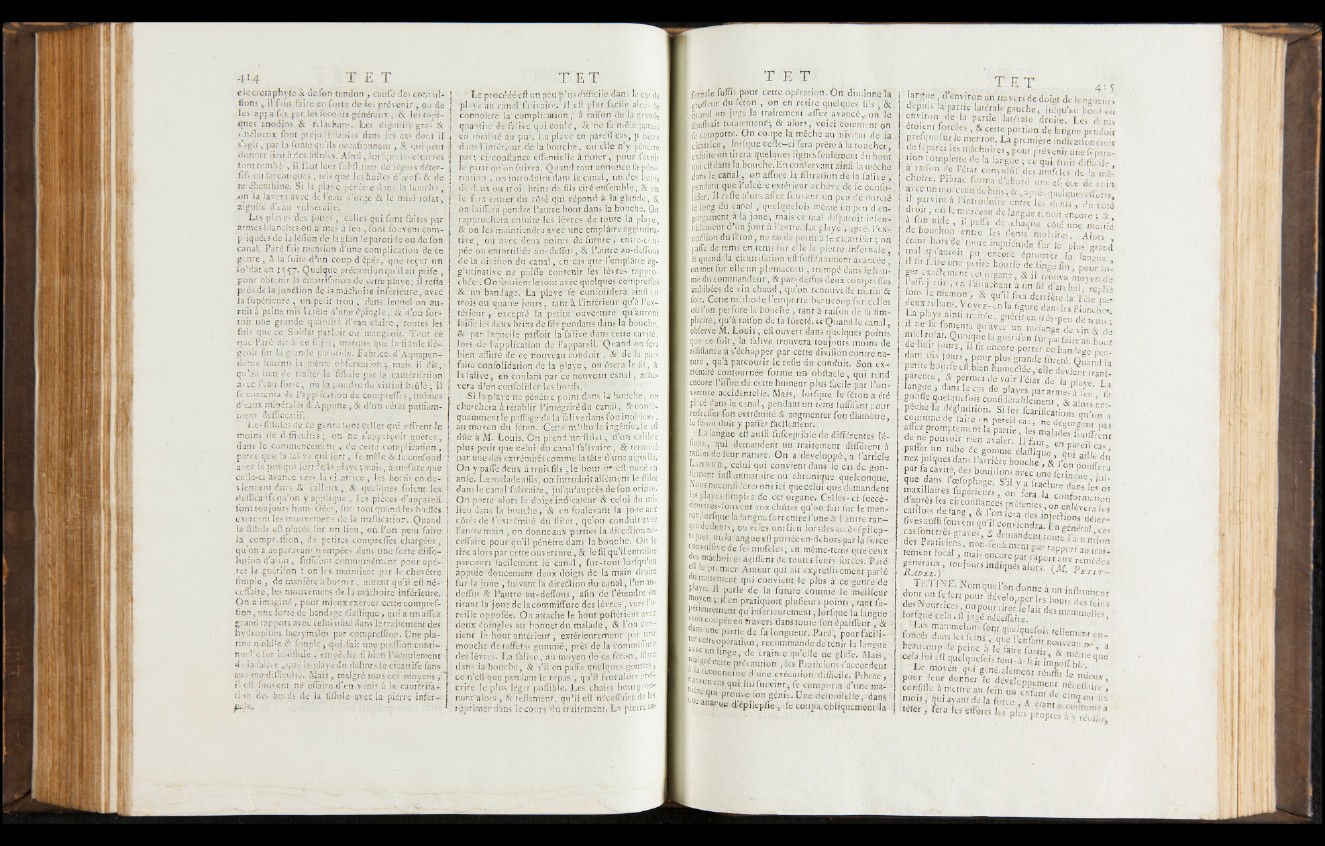 414 T E T
le crotaphyte & de son tendon, cause des convul-
sions, il faut faire en sorte de les prévenir, ou de
les appaiser par les secours généraux, & les topi-
ques anodins & relachans. Les digestifs gras &
s'agit, par la fonte qu'ils occasionnent, & qui peut
donner lieu à des fistules. Ainsi, lorsque les escarres
sont tombé , il faut leur substituer de légers déter-
sifs ou sarcotiques, tels que les huiles d'œuf & de
térébenthine. Si la playe pénètre dans la bouche,
on la lavera avec de l'eau d'orge & le miel rosat,
aiguisé d'eau vulnéraire.
Les playes des joues, celles qui sont faites par
armes blanches ou armes à feu, sont souvent com-
pliquées de la lésion de la glande parotide ou de son
canal. Paré fait mention d'une complication de ce
genre, à la suite d'un coup d'épée, que reçut un
soldat en 1557. Quelque précaution qu'il ait prise,
pour obtenir la cicatrisation de cette playe, il resta
près de la jonction de la mâchoire inférieure, avec
la supérieure, un petit trou, dans lequel on au-
roit à peine mis la tête d'une épingle, & d'où sor-
toit une grande quantité d'eau claire, toutes les
fois que ce Soldat parloit ou mangeoit. Tout ce
que Paré dit à ce sujet, marque que la fistule sié-
geoit sur la glande parotide. Fabrice d'Aquapen-
dente fournit la même observation; mais il dit,
qu'au lieu de traiter la fistule par la cautérisation
avec l'eau forte, ou la poudre de vitriol brûlé, il
se contenta de l'application de compresses, imbues
d'eaux minérales d'Appone, & d'un cérat puissam-
ment dessiccatif.
Les fistules de ce genre sont celles qui offrent le
moins de difficultés; on ne s'apperçoit guères,
dans le commencement, de cette complication,
parce que la salive qui sort, se mêle & se confond
avec le pus qui sort de la playe; mais, à mesure que
celle-ci avance vers la cicatrice, les bords en de-
viennent durs & calleux, & quelques soient les
dessicatifs qu'on y applique, les pièces d'appareil
sont toujours humectées, sur-tout quand les blessés
exercent les mouvemens de la mastication. Quand
la fistule est placée sur un lieu, où l'on peut faire
la compression, de petites compresses chargées,
qu'on a auparavant trempées dans une forte disso-
lution d'alun, suffisent communément pour opé-
rer la guérison: on les maintient par le chevêtre
simple, de manière à borner, autant qu'il est né-
cessaire, les mouvemens de la mâchoire inférieure.
On a imaginé, pour mieux exercer cette compres-
sion, une sorte de bandage élastique, qui a un assez
grand rapport avec celui usité dans le traitement des
hydropisies lacrymales par compression. Une pla-
tine mobile & souple, qui fait une pression conti-
nuelle sur la fistule, empêche si bien l'écoulement
de la salive, que la playe du dehors se cicatrise sans
aucune difficulté. Mais, malgré tous ces moyens,
il est souvent nécessaire d'en venir à la cautérisa-
tion des bords de la fistule avec la pierre infer-
nale.
T E T
Le procédé est un peu plus difficile dans le cas de
playe au canal salivaire. Il est plus facile alors de
connoître la complication, à raison de la grande
quantité de salive qui coule, & ne se mêle jamais
en totalité au pus. La playe en pareil cas, pénètre
dans l'intérieur de la bouche, ou elle n'y pénètre
pas; circonstance essentielle à noter, pour savoir
le parti qu'on suivra. Quand tout annonce sa péné-
tration, on introduira dans le canal, un des bouts
de deux ou trois brins de fils ciré ensemble, & on
le fera entrer du côté qui répond à la glande, &
on laissera pendre l'autre bout dans la bouche. On
rapprochera ensuite les lèvres de toute la playe,
& on les maintiendra avec une emplâtre agglutina-
tive, ou avec deux points de suture, entre-cou-
pée ou entortillée au-dessus, & l'autre au-dessous
de la division du canal, en cas que l'emplâtre ag-
glutinative ne puisse contenir les lèvres rappro-
chées. On soutient le tout avec quelques compresses
& un bandage. La playe se consolidera ainsi en
trois ou quatre jours, tant à l'intérieur qu'à l'ex-
térieur, excepté la petite ouverture qu'auront
laissé les deux brins de fils pendans dans la bouche,
& par laquelle passoit la salive dans cette cavité,
lors de l'application de l'appareil. Quand on sera
bien assuré de ce nouveau conduit, & de la par-
faite consolidation de la playe, on ôtera le fil, &
la salive, en coulant par ce nouveau canal, achè-
vera d'en consolider les bords.
Si la playe ne pénètre point dans la bouche, on
cherchera à rétablir l'intégrité du canal, & consé-
quemment le passage de la salive dans son intérieur,
au moyen du séton. Cette méthode ingénieuse est
dûe à M. Louis. On prend un stilet, d'un calibre
plus petit que celui du canal salivaire, & terminé
par une des extrémités comme la tête d'une aiguille.
On y passe deux à trois fils, le bout en est noué en
anse. Le malade assis, on introduit aisément le stilet
dans le canal salivaire, jusqu'auprès de son orifice.
On porte alors le doigt indicateur & celui du mi-
lieu dans la bouche, & en soulevant la joue aux
côtés de l'extrémité du stilet, qu'on conduit avec
l'autre main, on donne aux parties la direction né-
cessaire pour qu'il pénètre dans la bouche. On le
tire alors par cette ouverture, & le fil qu'il entraîne
parcourt facilement le canal, sur-tout lorsqu'on
appuie doucement deux doigts de la main droite
sur la joue, suivant la direction du canal, l'un au-
dessus & l'autre au-dessous, afin de l'étendre en
tirant la joue de la commissure des lèvres, vers l'o-
reille opposée. On attache le bout postérieur avec
deux épingles au bonnet du malade, & l'on con-
tient le bout antérieur, extérieurement par une
mouche de taffetas gommé, près de la commissure
des lèvres. La salive, au moyen de ce séton, flue
dans la bouche, & s'il en passe quelques gouttes,
ce n'est que pendant le repas, qu'il faut alors pres-
crire le plus léger possible. Les chairs bourgeon-
nent alors, & tellement, qu'il est nécessaire de les
réprimer dans le cours du traitement. La pierre in-
T E T
fernale suffit pour cette opération. On diminue la
grosseur du séton, on en retire quelques fils, &
quand on juge le traitement assez avancé, on le
soustrait totalement; & alors, voici comment on
se comporte. On coupe la mêche au niveau de la
cicatrice, lorsque celle-ci sera prête à la toucher,
ensuite on tirera quelques lignes seulement du bout
qui est dans la bouche. En conservant ainsi la mêche
dans le canal, on assure la filtration de la salive,
pendant que l'ulcère extérieur achève de se conso-
lider. Il reste alors assez souvent un peu de dureté
le long du canal, quelquefois même un peu d'en-
gorgement à la joue, mais ce mal disparoît insen-
siblement d'un jour à l'autre. La playe, après l'ex-
traction du séton, ne tarde point à se cicatriser; on
passe de tems en tems sur elle la pierre infernale,
& quand la cicatrisation est suffisamment avancée,
on met sur elle un plumaceau, trempé dans le bau-
me du commandeur, & par-dessus deux compresses
imbibées de vin chaud, qu'on renouvelle matin &
soir. Cette méthode l'emporte beaucoup sur celles
où l'on perfore la bouche, tant à raison de la sim-
plicité, qu'à raison de sa sûreté. « Quand le canal,
observe M. Louis, est ouvert dans quelques points
que ce soit, la salive trouvera toujours moins de
résistance à s'échapper par cette division contre na-
ture, qu'à parcourir le reste du conduit. Son ex-
trémité contournée forme un obstacle, qui rend
encore l'issue de cette humeur plus facile par l'ou-
verture accidentelle. Mais, lorsque le séton a été
placé dans le canal, pendant un tems suffisant pour
redresser son extrémité & augmenter son diamètre,
le fluide doit y passer facilement.
La langue est aussi susceptible de différentes lé-
sions, qui demandent un traitement différent à
raison de leur nature. On a développé, à l'article
LANGUE, celui qui convient dans le cas de gon-
flement inflammatoire ou chronique quelconque.
Nous ne considérerons ici que celui que demandent
les playes simples de cet organe. Celles-ci succè-
dent très-souvent aux chûtes qu'on fait sur le men-
ton, lorsque la langue sort entre l'une & l'autre ran-
gée de dents, ou elles ont lieu lors des accès épilep-
tiques, où la langue est portée en-dehors par la force
convulsive de ses muscles, en même-tems que ceux
des mâchoires agissent de toutes leurs forces. Paré
est le premier Auteur qui ait expressément parlé
du traitement qui convient le plus à ce genre de
playe. Il parle de la suture comme le meilleur
moyen; il en pratiquoit plusieurs points, tant su-
périeurement qu'inférieurement, lorsque la langue
étoit coupée en travers dans toute son épaisseur, &
dans une partie de sa longueur. Paré, pour facili-
ter cette opération, recommande de tenir la langue
avec un linge, de crainte qu'elle ne glisse. Mais,
malgré cette précaution, les Praticiens s'accordent
à la reconnoître d'une exécution difficile. Pibrac,
dans un cas qui lui survint, se comporta d'une ma-
nière qui prouve son génie. Une demoiselle, dans
une attaque d'épilepsie, se coupa obliquement la
T E T 415
langue, d'environ un travers de doigt de longueur,
depuis la partie latérale gauche, jusqu'au bord ou
environ de la partie latérale droite. Les dents
étoient forcées, & cette portion de langue pendoit
presque sur le menton. La première indication étoit
de séparer les mâchoires, pour prévenir une sépara-
tion complette de la langue; ce qui étoit difficile,
à raison de l'état convulsif des muscles de la mâ-
choire. Pibrac forma d'abord une espèce de coin
avec un morceau de bois, & après quelques efforts,
il parvint à l'introduire entre les dents, du côté
droit, où le morceau de langue tenoit encore; &,
à son aide, il passa de chaque côté une moitié
de bouchon entre les dents molaires. Alors,
étant hors de toute inquiétude sur le plus grand
mal qu'auroit pu encore éprouver la langue,
il fit faire une petite bourse de linge fin, pour lo-
ger exactement cet organe, & il trouva moyen de
l'assujettir, en l'attachant à un fil d'archal, replié
sous le menton, & qu'il fixa derrière la tête par
deux rubans. Voyez-en la figure dans les Planches.
La playe ainsi traitée, guérit en très-peu de tems;
il ne la fomenta qu'avec un mélange de vin & de
miel rosat. Quoique la guérison fût parfaite au bout
de huit jours, il fit encore porter ce bandage pen-
dant dix jours, pour plus grande sûreté. Quand la
petite bourse est bien humectée, elle devient trans-
parente, & permet de voir l'état de la playe. La
langue, dans le cas de playes par armes à feu, se
gonfle quelquefois considérablement, & alors em-
pêche la déglutition. Si les scarifications qu'on a
coutume de faire en pareil cas, ne dégorgent pas
assez promptement la partie, les malades souffrent
de ne pouvoir rien avaler. Il faut, en pareil cas,
passer un tube de gomme élastique, qui aille du
nez jusques dans l'arrière bouche, & l'on poussera
par sa cavité, des bouillons avec une seringue, jus-
que dans l'œsophage. S'il y a fracture dans les os
maxillaires supérieurs, on fera la conformation
d'après les circonstances présentes, on enlèvera les
caillots de sang, & l'on fera des injections déter-
sives aussi souvent qu'il conviendra. En général, ces
cas sont très-graves, & demandent toute l'attention
des Praticiens, non-seulement par rapport au trai-
tement local, mais encore par rapport aux remèdes
généraux, toujours indiqués alors. (M. PETIT-
RADEL.)
TETINE. Nom que l'on donne à un instrument
dont on se sert pour développer les bouts des seins
des Nourrices, ou pour tirer le lait des mammelles,
lorsque cela est jugé nécessaire.
Les mammelons sont quelquefois tellement en-
foncés dans les seins, que l'enfant nouveau né, a
beaucoup de peine à le faire sortir, & même que
cela lui est quelquefois tout-à-fait impossible.
Le moyen qui généralement réussit le mieux,
pour leur donner le développement nécessaire,
consiste à mettre au sein un enfant de cinq ou six
mois, qui ayant de la force, & étant accoutumé à
téter, fera les efforts les plus propres à y réussir,